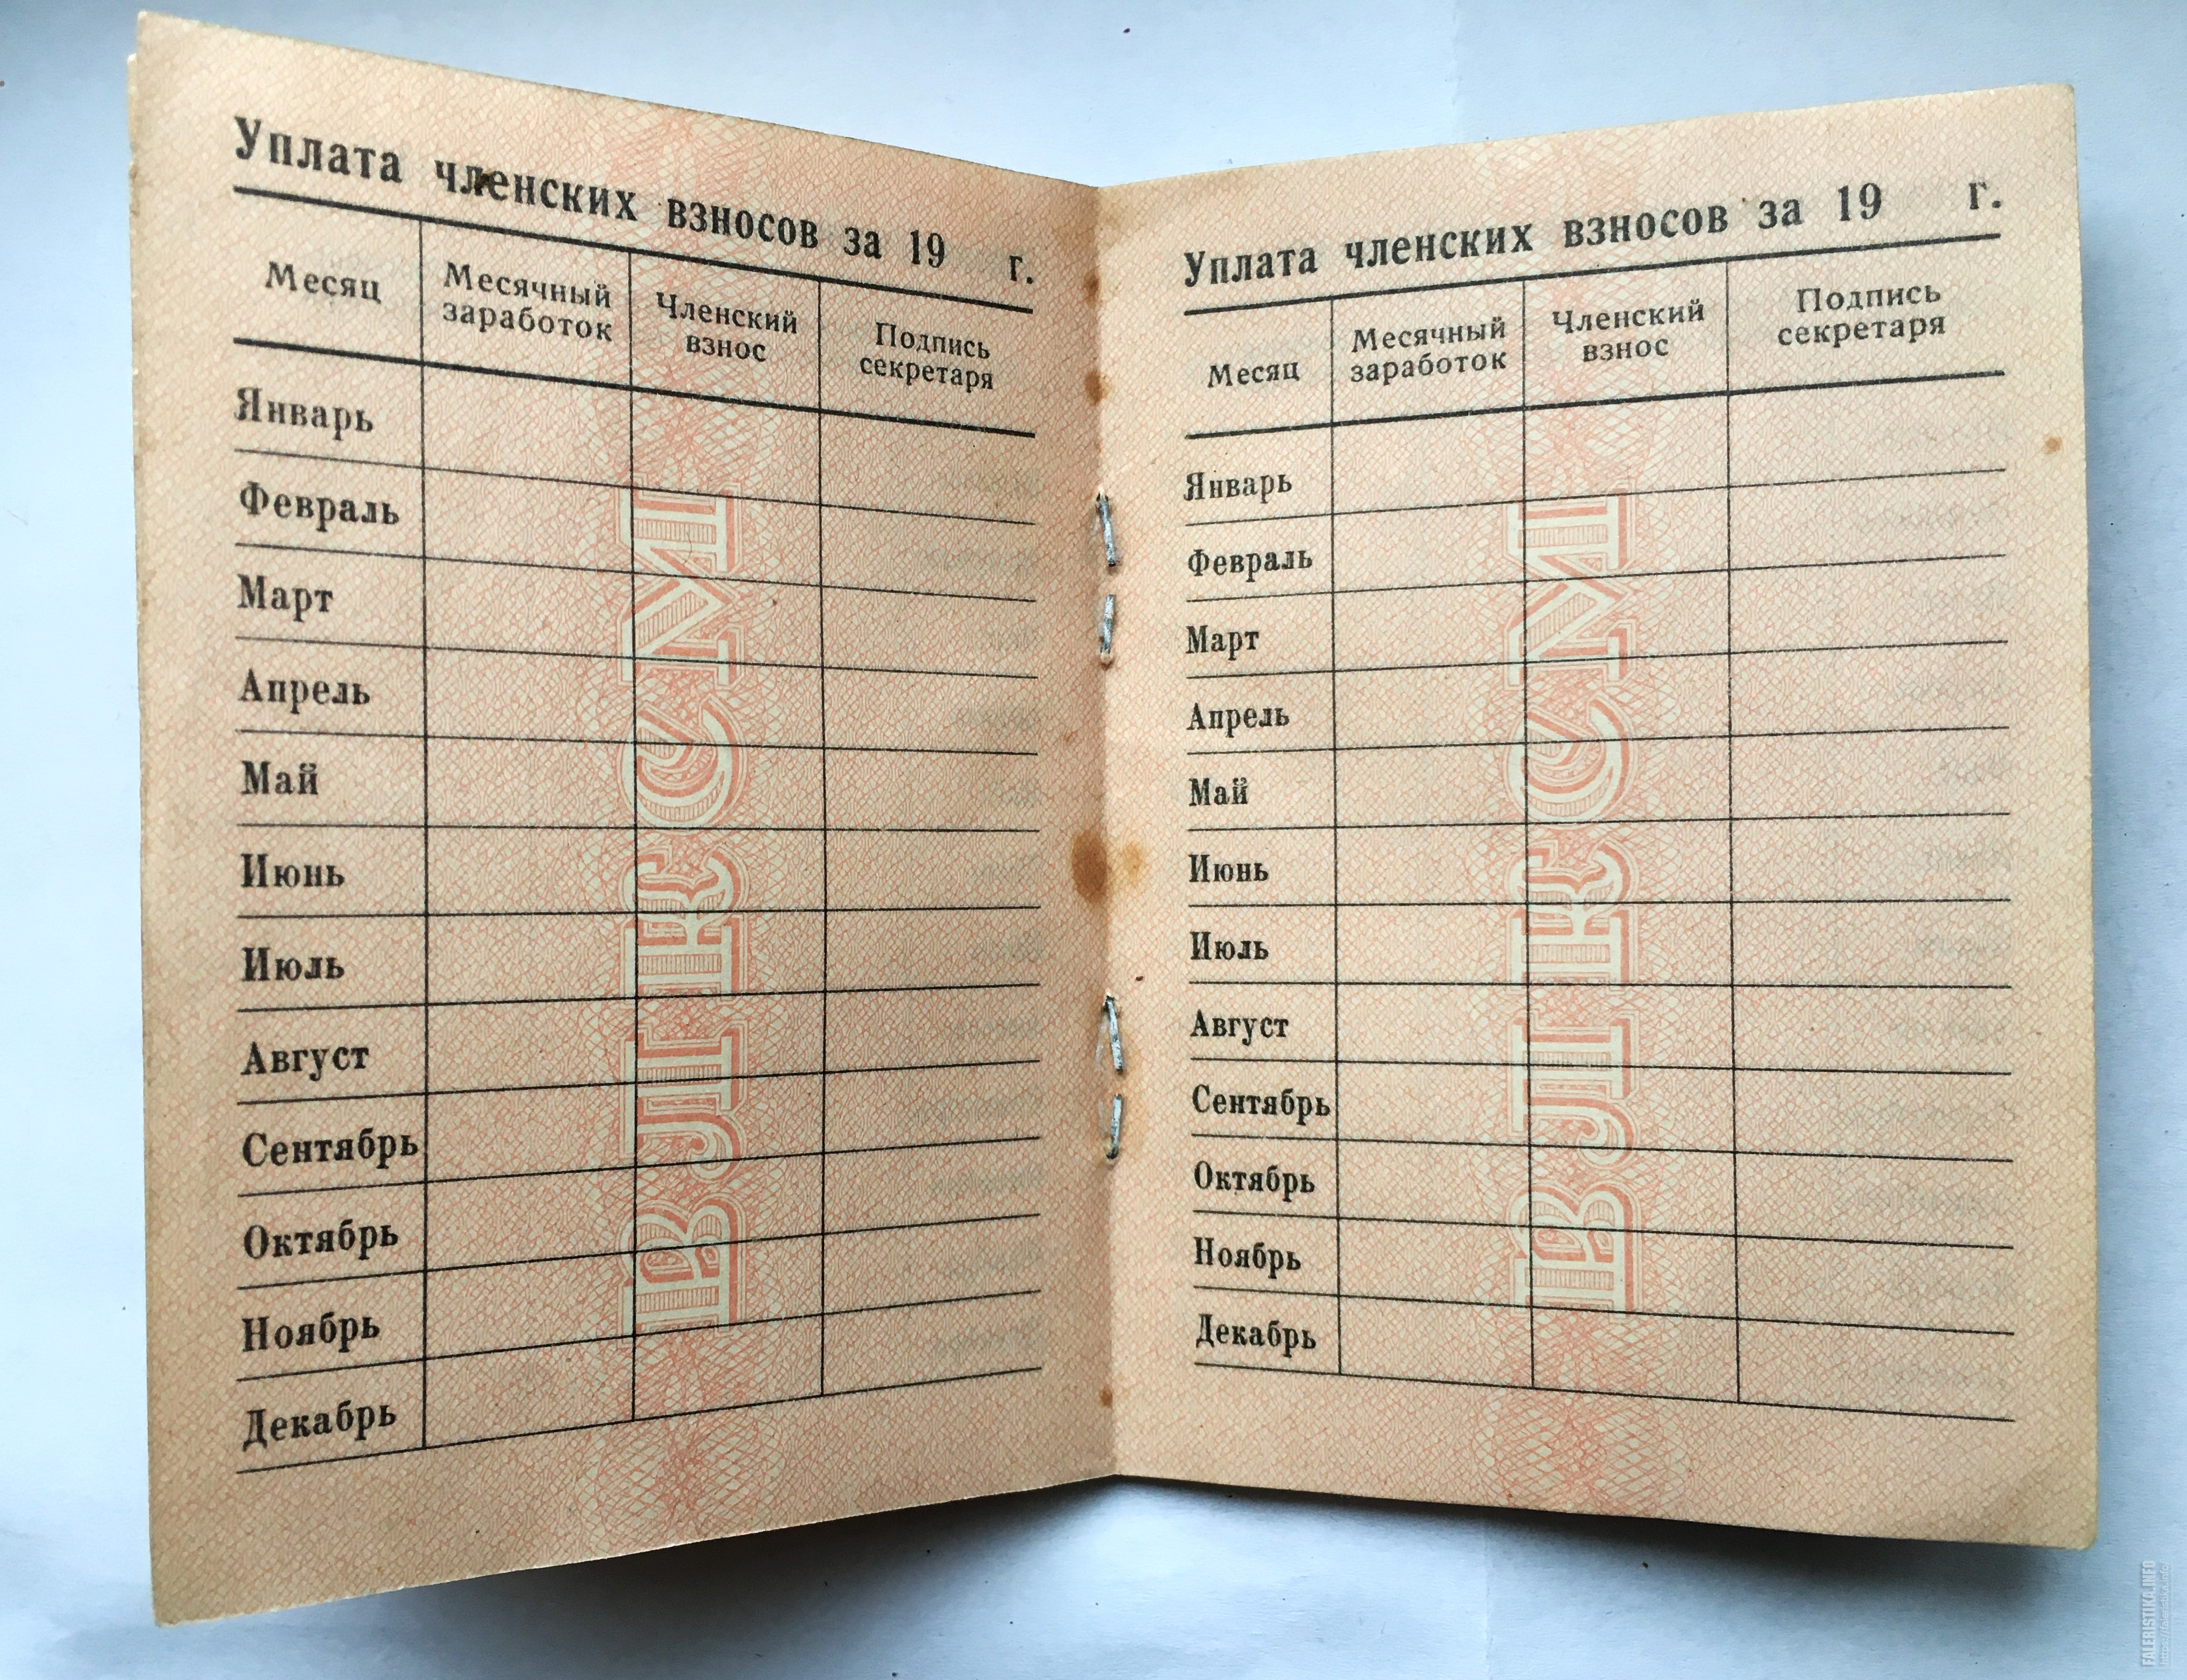 Уплата членских взносов за 19 г.
Месяц
Месячный
заработок
Членский
взнос
Подпись
секретаря
Январь
Февраль
Март
Апрель
Май
Июнь
Июль
Август
Сентябрь
Октябрь
Ноябрь
Декабрь
ВЛКСМ
Уплата членских взносов за 19 г.
Месяц
Месячный
заработок
Членский
взнос
Подпись
секретаря
Январь
Февраль
Март
Апрель
Май
Июнь
Июль
Август
Сентябрь
Октябрь
Ноябрь
Декабрь
ВЛКСМ
FALERISTIKA.INFO